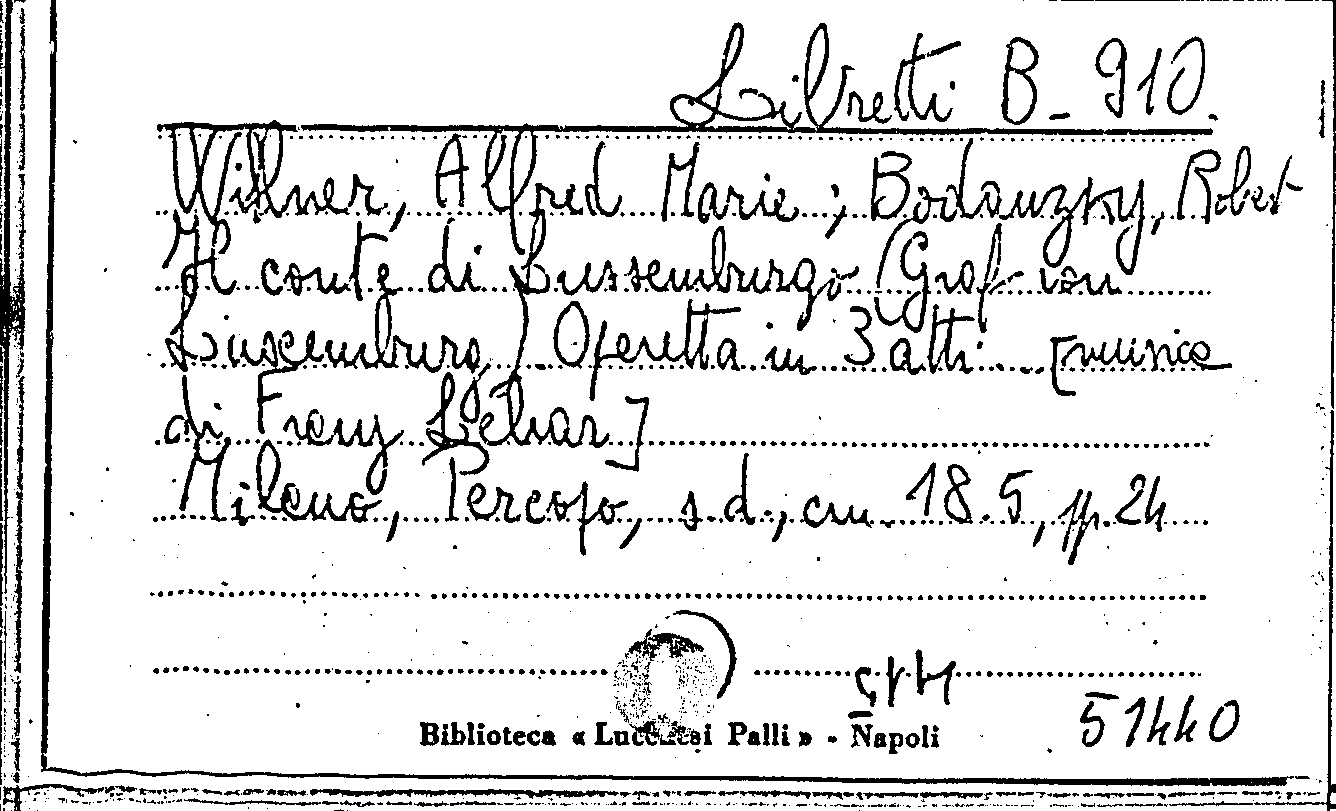 Libretti B - 910.
Willner, Alfred Marie ; Bodanzky, Robert
Il conte di Lussemburgo (Graf von
Luxemburg). Operetta in 3 atti.... [musica
di Franz Lehar]
Milano, Percopo, s.d., cm. 18.5, pp. 24
51440
Biblioteca « Lucchesi Palli » - Napoli